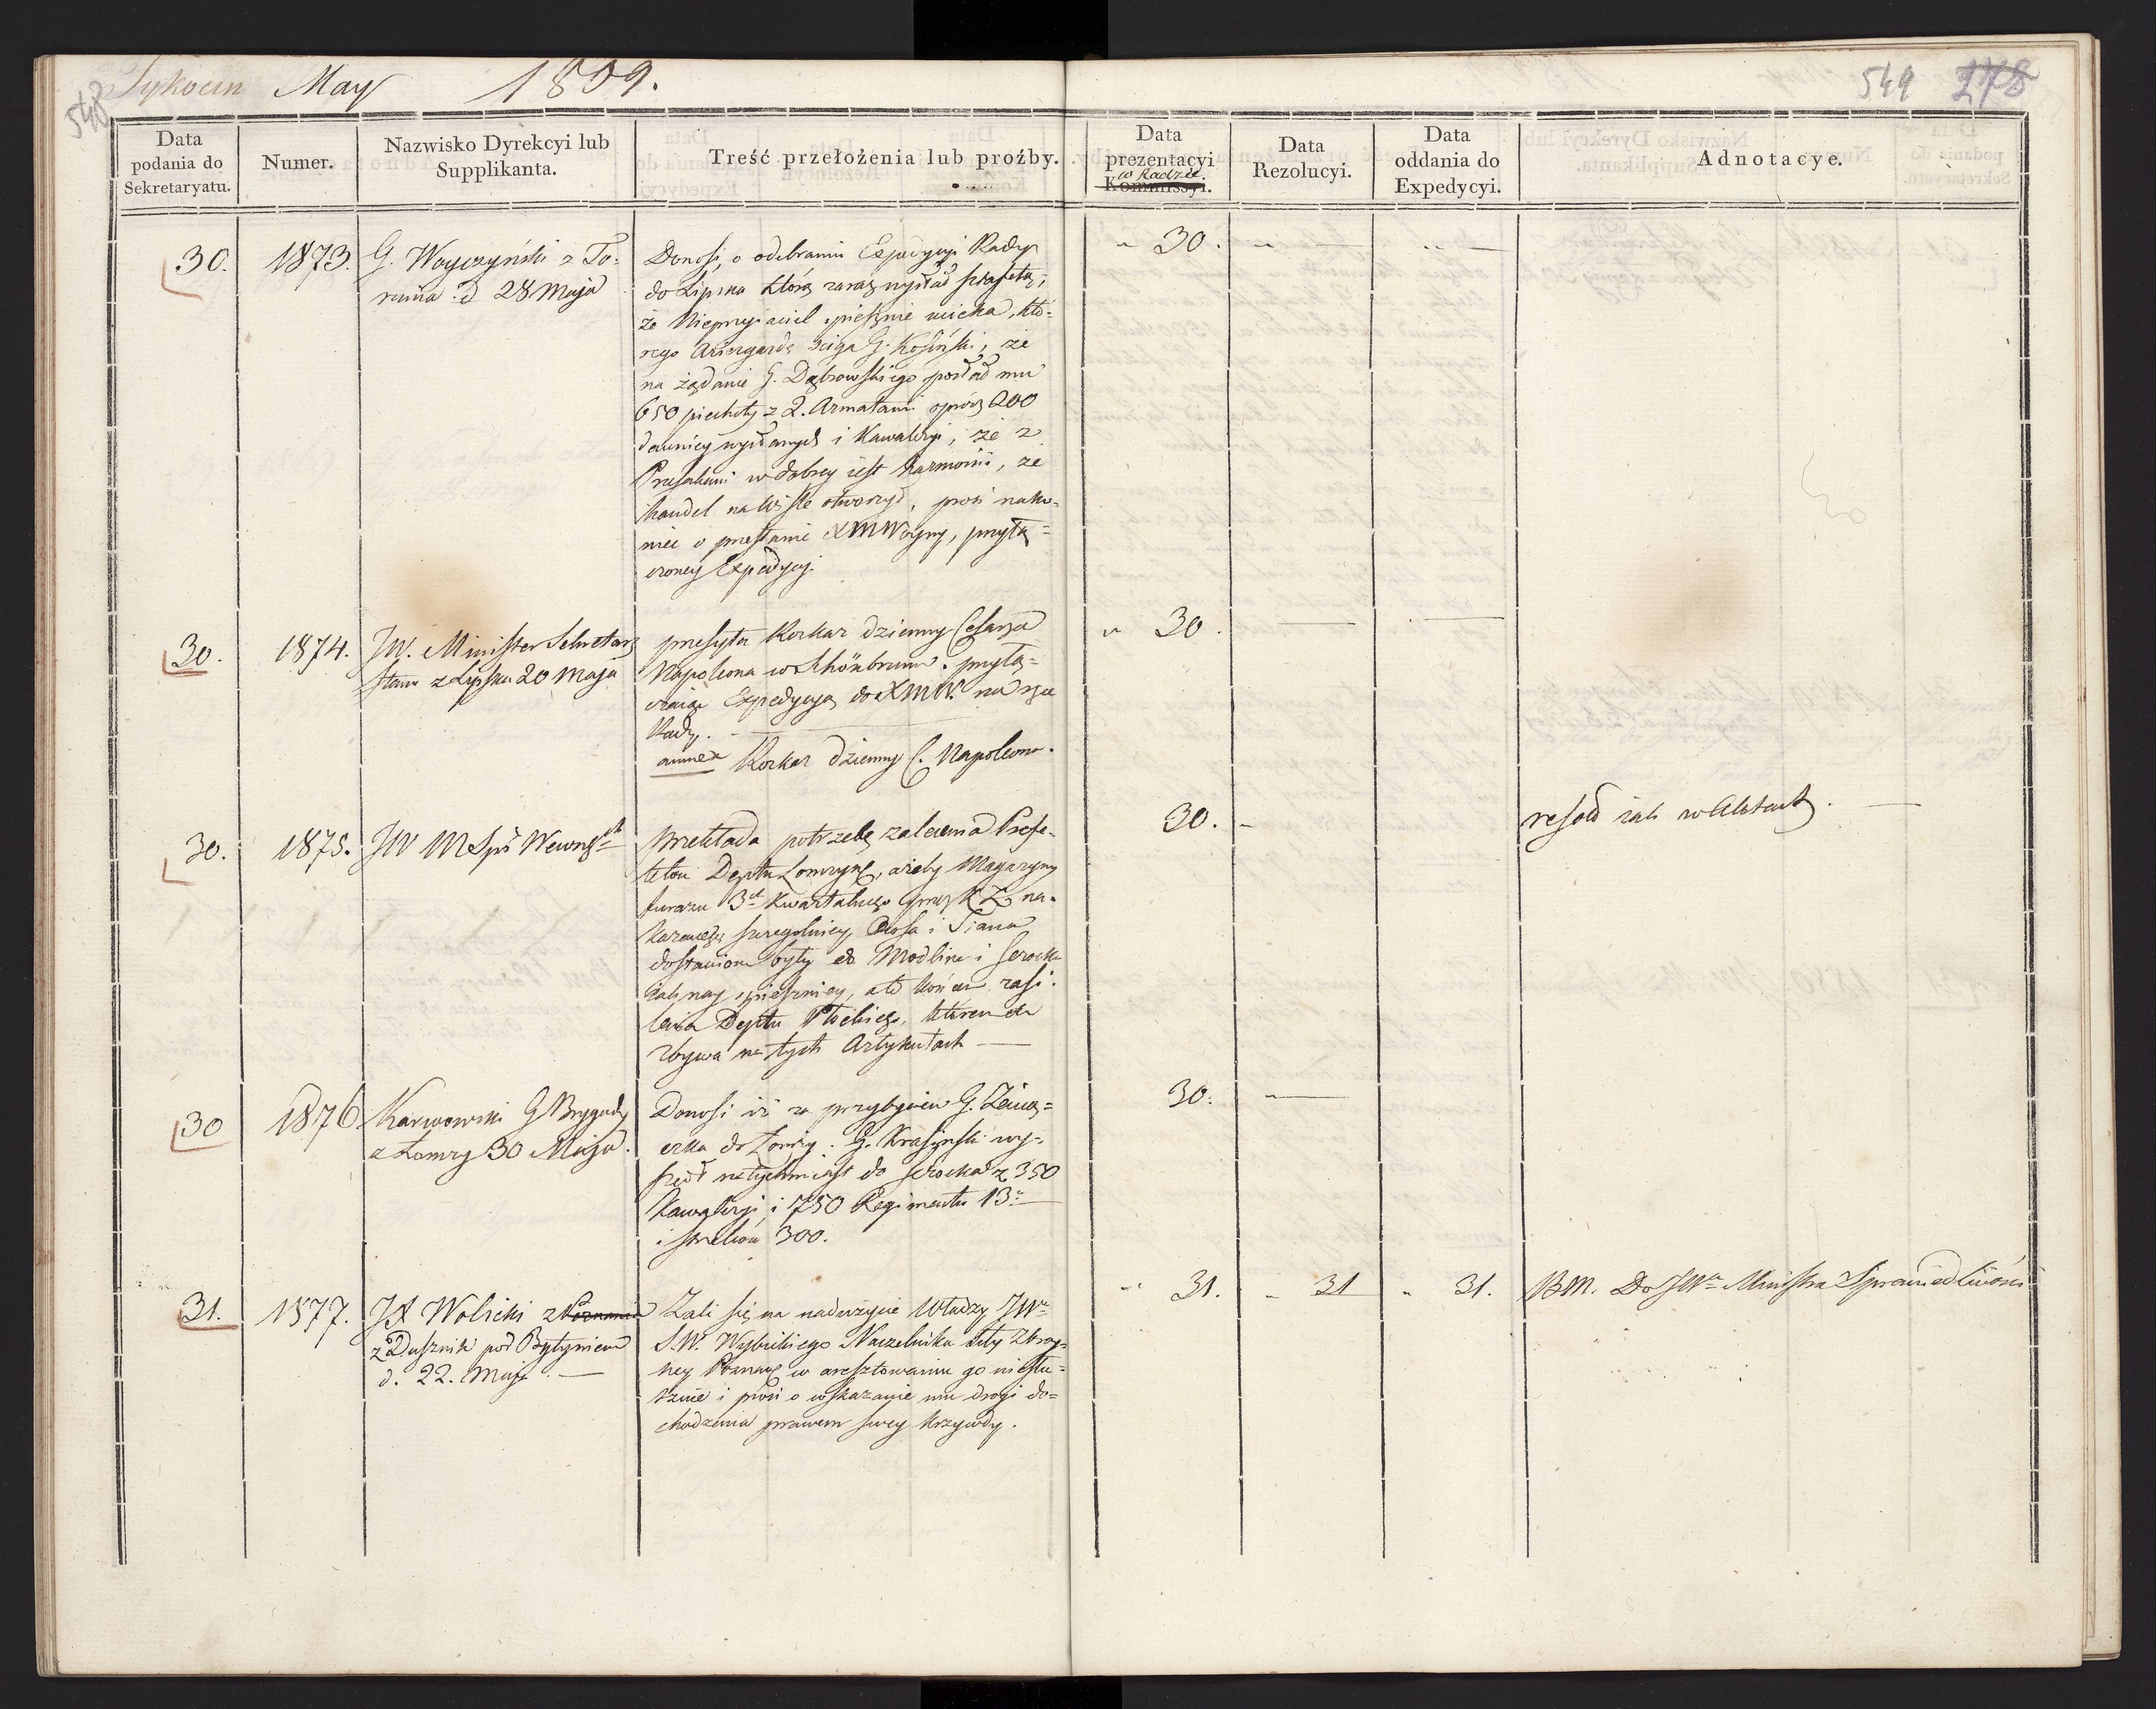 548
Tykocin May 1809.
549 278
Data podania do Sekretaryatu.
Numer.
Nazwisko Dyrekcyi lub Supplikanta.
Treść przełożenia lub proźby.
Data prezentacyi Kommissyi.
w Radzie
Data Rezolucyi.
Data oddania do Expedycyi.
Adnotacye.
30. 1873. G. Woyczyński z To=
runia d 28 Maja
Donosi, o odebraniu Expedycyi Rady
do Lipska którą zaraz wysłał sztafetą,
że Nieprzyjaciel spiesznie ucieka, któ=
rego Arriergardę sciga G. Kosiński, że
na żądanie G. Dąbrowskiego posłał mu
650 piechoty z 2. Armatami oprócz 200
dawniey wysłanych i Kawaleryi, że z
Prusakami w dobrey iest harmonii, że
handel na Wiśle otworzył, prosi nako=
niec o przesłanie XMWoyny, przyłą=
czoney Expedycyi.
" 30. " —
30. 1874. JW. Minister Sekretarz
Stanu z Lipska 20 Maja
przesyła Rozkaz dzienny Cesarza
Napoleona w Schönbrunn. przyłą=
czaiąc Expedycyą do XMW. na ręce
Rady.
annex Rozkaz dzienny C. Napoleona.
" 30.
30. 1875. JW M Spr Wewnęch
przekłada potrzebę zalecenia Prefe-
ktowi Deptu Łomżyńs, ażeby Magazyny
furażu 3o Kwartalnego przez K Z na-
kazanego szczególniey Owsa i Siana
dostawione były do Modlina i Serocka
iak nay spieszniey, a to końcem zasi-
lenia Deptu Płockiego, któremu
zbywa na tych Artykułach —
30. -
resol iak w Aktach. —
30 1876 Karwowski G Brygady
z Łomży 30 Maja.
Donosi iż za przybyciem G. Zaią=
czka do Łomży. G. Krasiński wy-
szedł natychmiast do Serocka z 350
Kawaleryi i 750 Regimentu 13o
strzelców 300.
30. —
31. 1877. JX Wolicki z Poznania
z Dusznik pod Bytyniem
d. 22. Maja. —
Żali się na nadużycie Władzy JWo
S.W. Wybickiego Naczelnika Siły Zbroy-
ney Poznańs w aresztowaniu go niesłu=
sznie i prosi o wskazanie mu drogi do=
chodzenia prawem swey krzywdy.
" 31. " 31 " 31. BM. Do JWo Ministra Sprawiedliwości